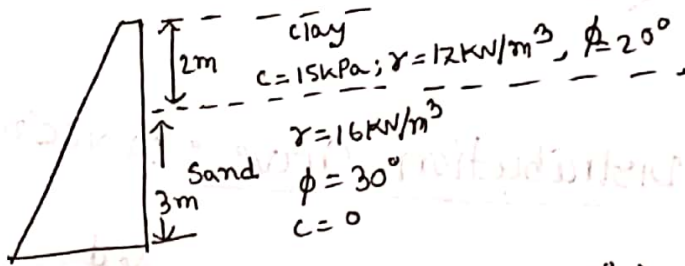 clay
2m
c=15kPa; γ=17KN/m³, φ=20°
γ=16KN/m³
Sand
φ=30°
3m
c=0